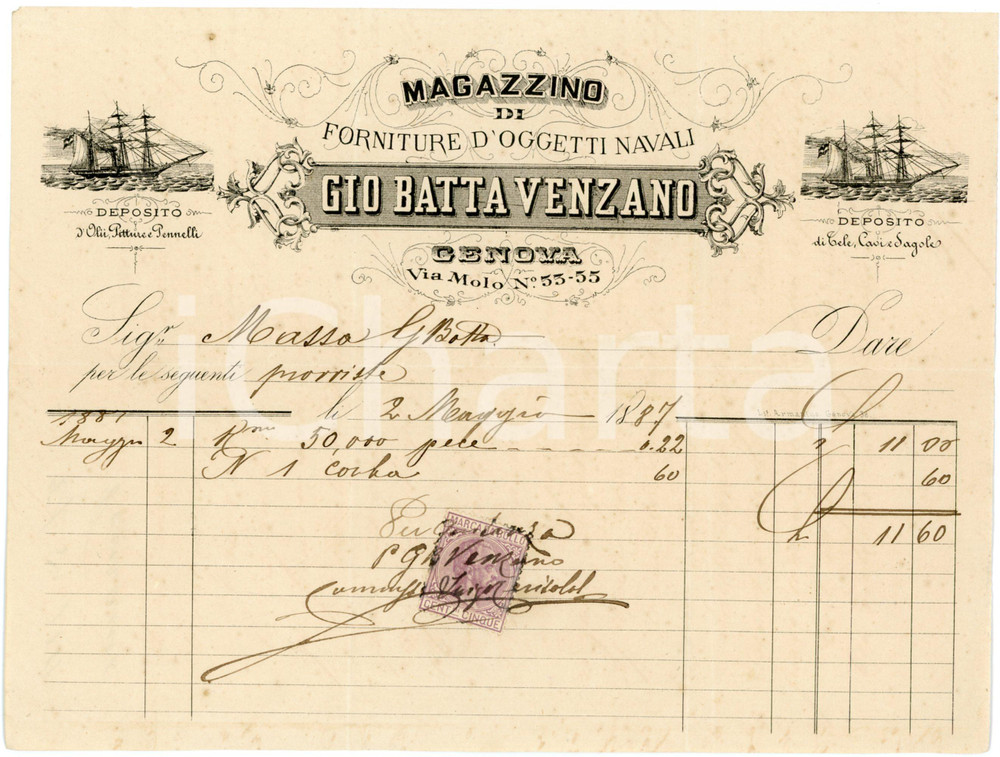 MAGAZZINO
DI
FORNITURE D'OGGETTI NAVALI
GIO BATTA VENZANO
GENOVA
Via Molo Nº 53-55
DEPOSITO
d'Olii, Pitture e Pennelli
DEPOSITO
di Tele, Cavi e Sagole
Sigr. Massa G Batta Dare
per le seguenti provviste
li 2 Maggio 1887
1887
Maggio 2 50,000 pece 0.22 11 00
N 1 corba 60 60
£ 11 60
Per
p G B Venzano
Luigi
MARCA DA BOLLO
CENT. CINQUE
iCharta